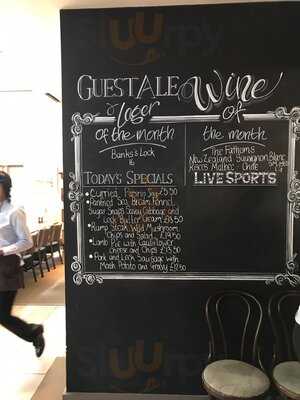 GUEST ALE
& Lager
of the month
Banks's Lock
Wine
of
the month
The Fathoms
New Zealand Sauvignon Blanc
Reines Malbec - Chile
LIVE SPORTS
TODAY'S SPECIALS
Curried Parsnip Soup £5.50
Panfried Sea Bream, Fennel,
Sugar Snaps, Savoy Cabbage and
Butter Cream £13.50
Rump Steak, Wild Mushroom,
Chips and Salad £19.50
Lamb Pie with Cauliflower
Cheese and Chips £13.50
Pork and Leek Sausage with
Mash Potato and Gravy £12.50
Sluurpy
Sluurpy